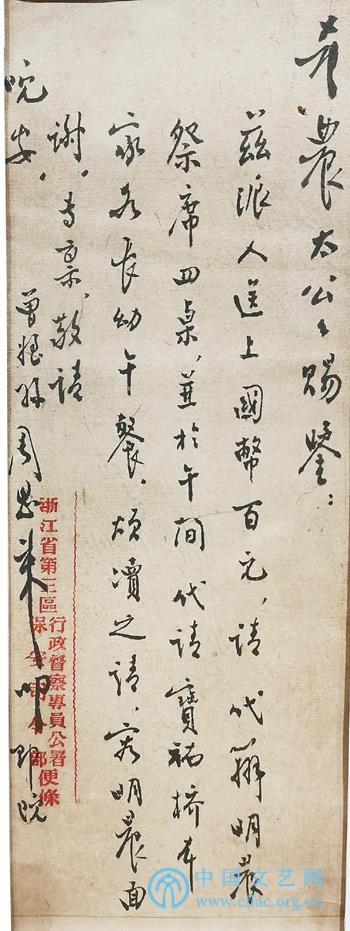 希農太公公賜鑒：
茲派人送上國幣百元，請代辦明晨
祭席四桌，並於午間代請寶祐橋本
家各長幼午餐。煩瀆之請，容明晨面
謝。專稟，敬請
晚安。
曾姪孫周恩來叩 即晚
浙江省第三區行政督察專員公署
保安司令部便條
中国文艺网
www.cflac.org.cn